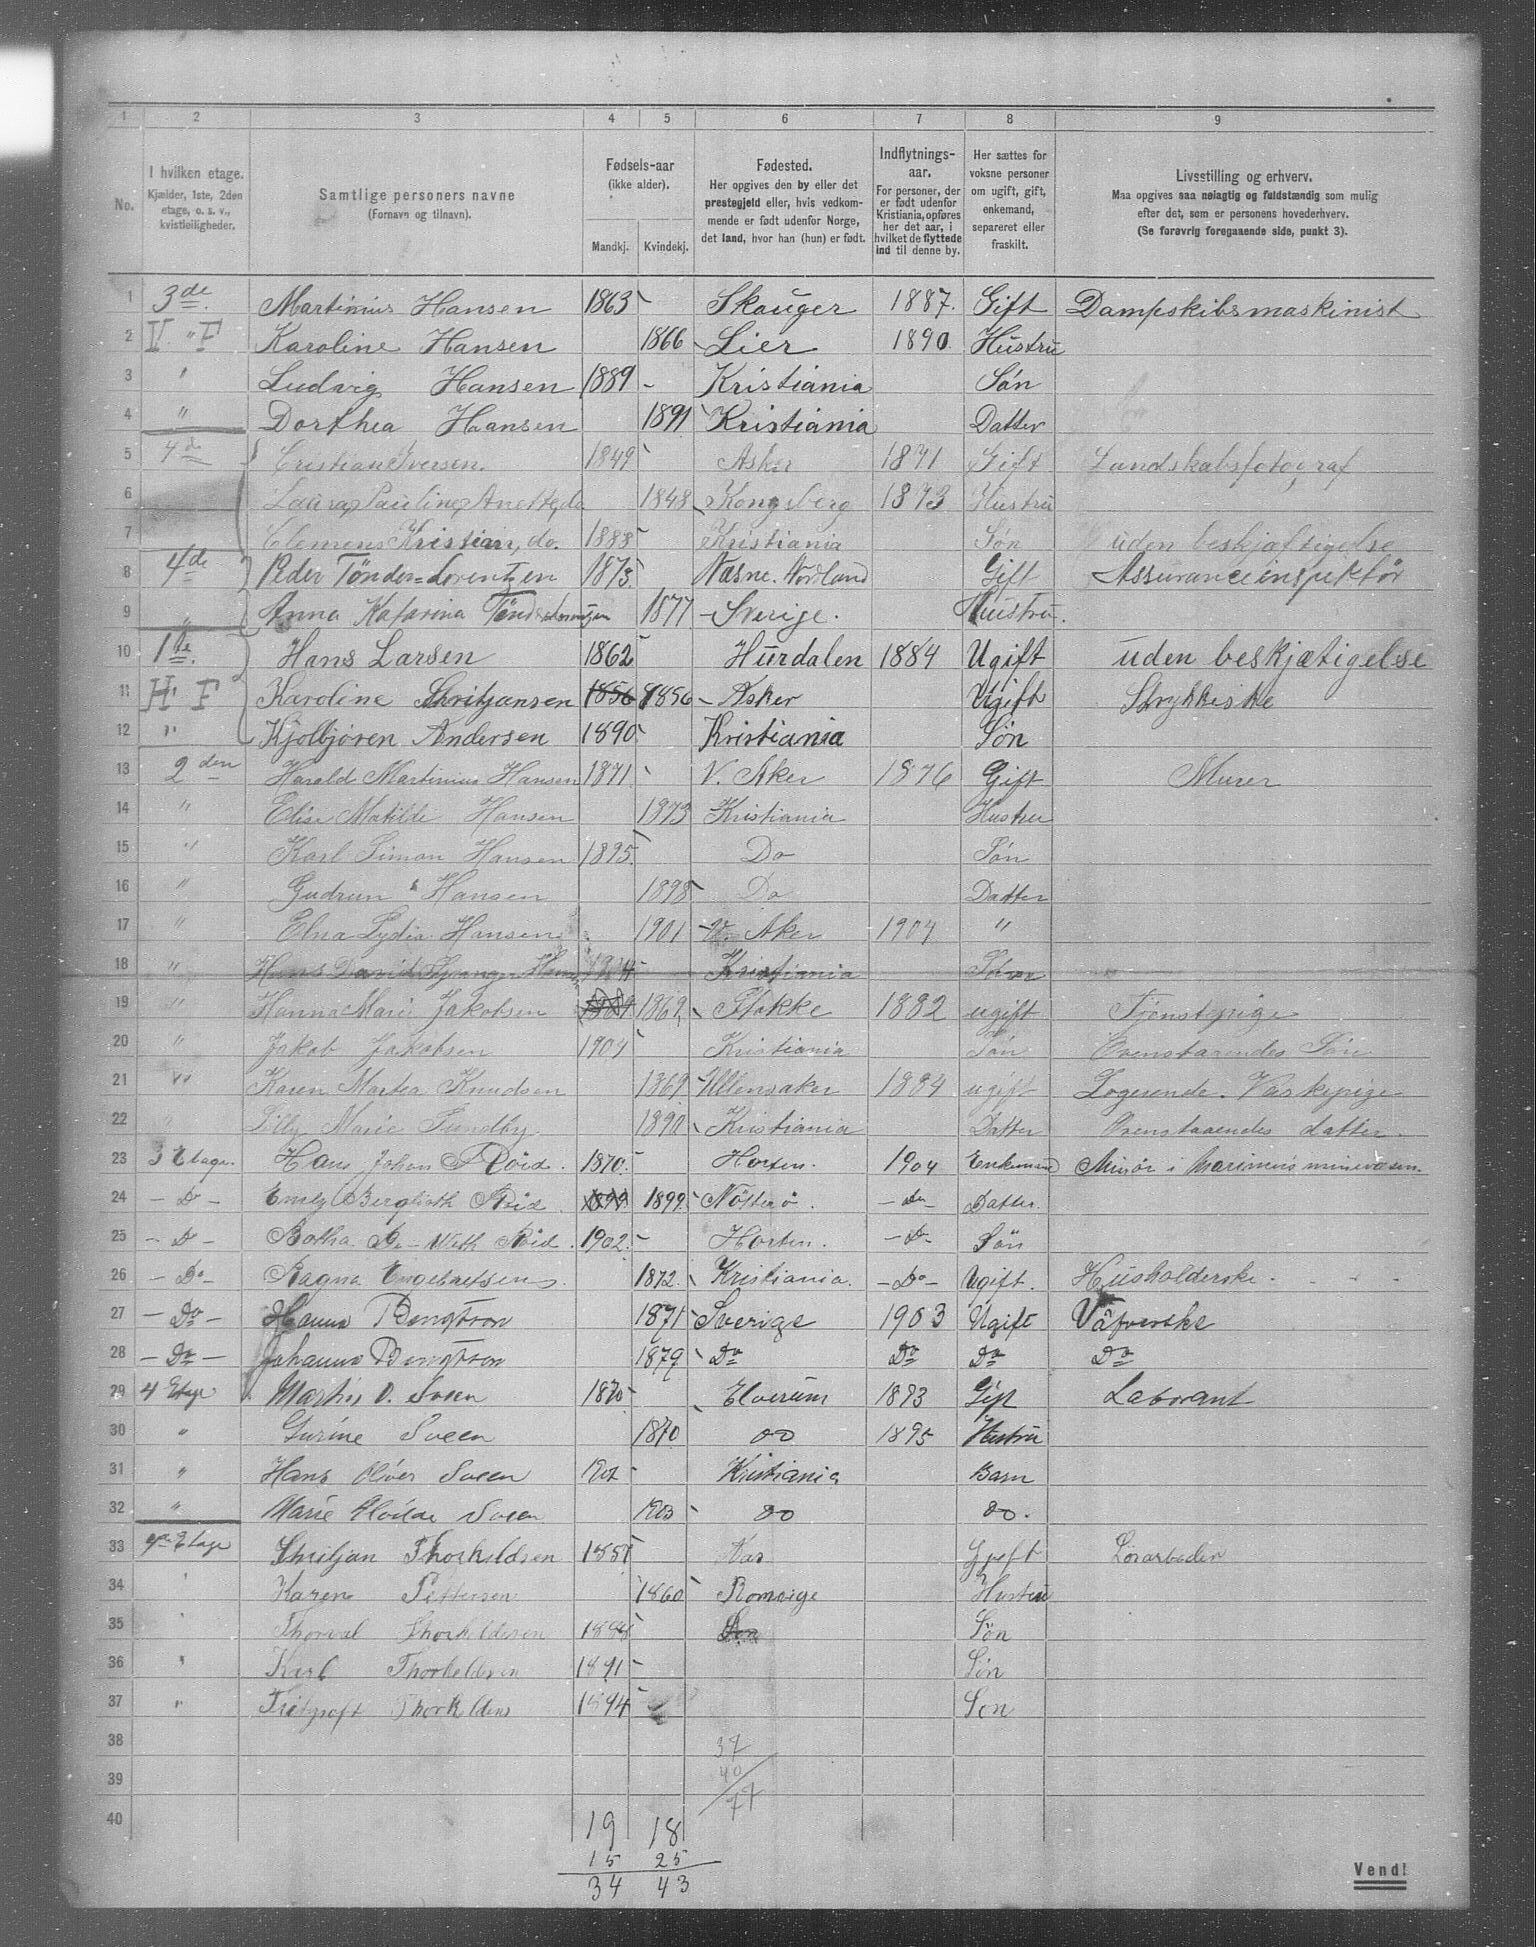 1 2 3 4 5 6 7 8 9
No.
I hvilken etage.
Kjælder, 1ste, 2den
etage, o. s. v.,
kvistleiligheder.
Samtlige personers navne
(Fornavn og tilnavn).
Fødsels-aar
(ikke alder).
Mandkj. Kvindekj.
Fødested.
Her opgives den by eller det
prestegjeld eller, hvis vedkom-
mende er født udenfor Norge,
det land, hvor han (hun) er født.
Indflytnings-
aar.
For personer, der
er født udenfor
Kristiania, opføres
her det aar, i
hvilket de flyttede
ind til denne by.
Her sættes for
voksne personer
om ugift, gift,
enkemand,
separeret eller
fraskilt.
Livsstilling og erhverv.
Maa opgives saa nøiagtig og fuldstændig som mulig
efter det, som er personens hovederhverv.
(Se forøvrig foregaaende side, punkt 3).
1 3de Martinius Hansen 1863 Skauger 1887. Gift Dampskibsmaskinist
2 V. " F Karoline Hansen 1866 Lier 1890 Hustru
3 " Ludvig Hansen 1889 Kristiania Søn
4 " Dorthea Hansen 1891 Kristiania Datter
5 4de Cristian Iversen. 1849 Asker 1871 Gift Landskabsfotograf
6 Laura Pauline Anette, do 1848 Kongsberg 1873 Hustru
7 Clemens Kristian, do. 1883 Kristiania Søn uden beskjæftigelse
8 4de Peder Tønder=Lorentzen 1873 Næsne. Nordland Gift Assuranceinspektør
9 " Anna Katarina 1877 Sverige. Hustru.
10 1ste. Hans Larsen 1862 Hurdalen 1884 Ugift uden beskjætigelse
11 H. F Karoline 1856 1856 Asker Ugift Strykkeske
12 " Kjølbjøren Andersen 1890 Kristiania Søn
13 2den Harald Martinius Hansen 1871 V. Aker 1876 Gift Murer
14 " Elise Matilde Hansen 1873 Kristiania Hustru
15 " Karl Simon Hansen 1895 Do Søn
16 " Gudrun Hansen 1898 Do Datter
17 " Elna Lydia Hansen 1901 V. Aker 1904 "
18 " Hans David Kristiania
19 " Hanna Marie Jakobsen 1869 Stokke 1882 ugift Tjenstepige
20 " Jakob Jakobsen 1904 Kristiania Søn Ovenstaaendes Søn
21 " Karen Marte Knudsen 1869 Ullensaker 1884 ugift Logerende. Vaskepige
22 " Lilly Marie Sundby 1890 Kristiania Datter Ovenstaaendes datter.
23 3 Etage. Hans Johan Röid. 1870. Horten. 1904 Enkemand Minør i Marinens minevæsen.
24 - D - Emly Berglioth Röid. 1899 1899. Nötterö. - Do - Datter.
25 - D - Botha Röid. 1902. Horten. - D - Sön
26 - Do - Ragna Engebretsen. 1872. Kristiania. - Do - Ugift. Husholderske.
27 - Do - Hanna Bengtson 1871 Sverige 1903 Ugift Väfverske
28 - Do - Johanna Bengtson 1879 Do Do Do Do
29 4 Etage Martin O. Sveen 1870 Elverum 1893 Gift Laborant
30 " Gurine Sveen 1870 do 1895 Hustru
31 " Hans Oliver Sveen 1902 Kristiania Barn
32 " Marie Sveen 1903 do do.
33 Etage Thorkeldsen Gift Løsarbeder
34 Karen Pettersen 1860 Hustru
35 Thorval Thorkeldsen 1888 Søn
36 " Karl Thorkeldsen 1891 Søn
37 " Thorkeldsen 1894 Søn
38 37
39 40
77
40 19 18
15 25
34 43
Vend!